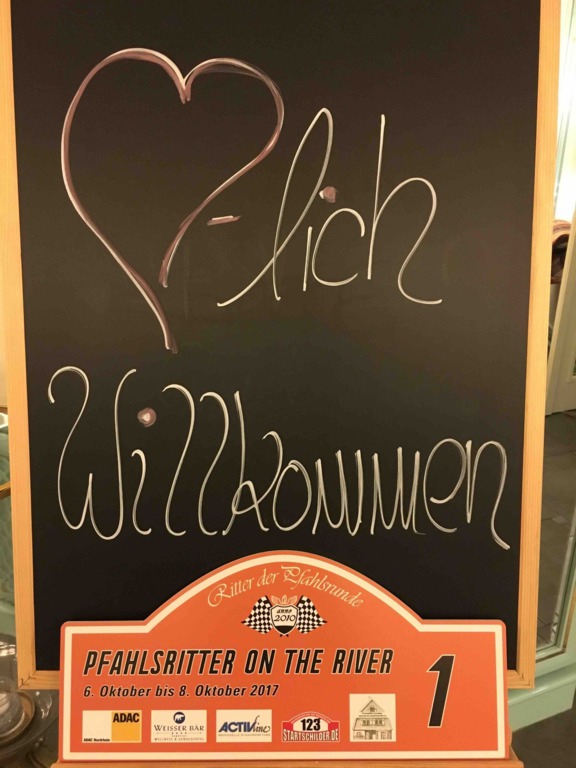 -lich
Willkommen
Ritter der Pfahlsrunde
2010
PFAHLSRITTER ON THE RIVER
6. Oktober bis 8. Oktober 2017
1
ADAC
WEISSER BÄR
ACTIVline
123
STARTSCHILDER.DE